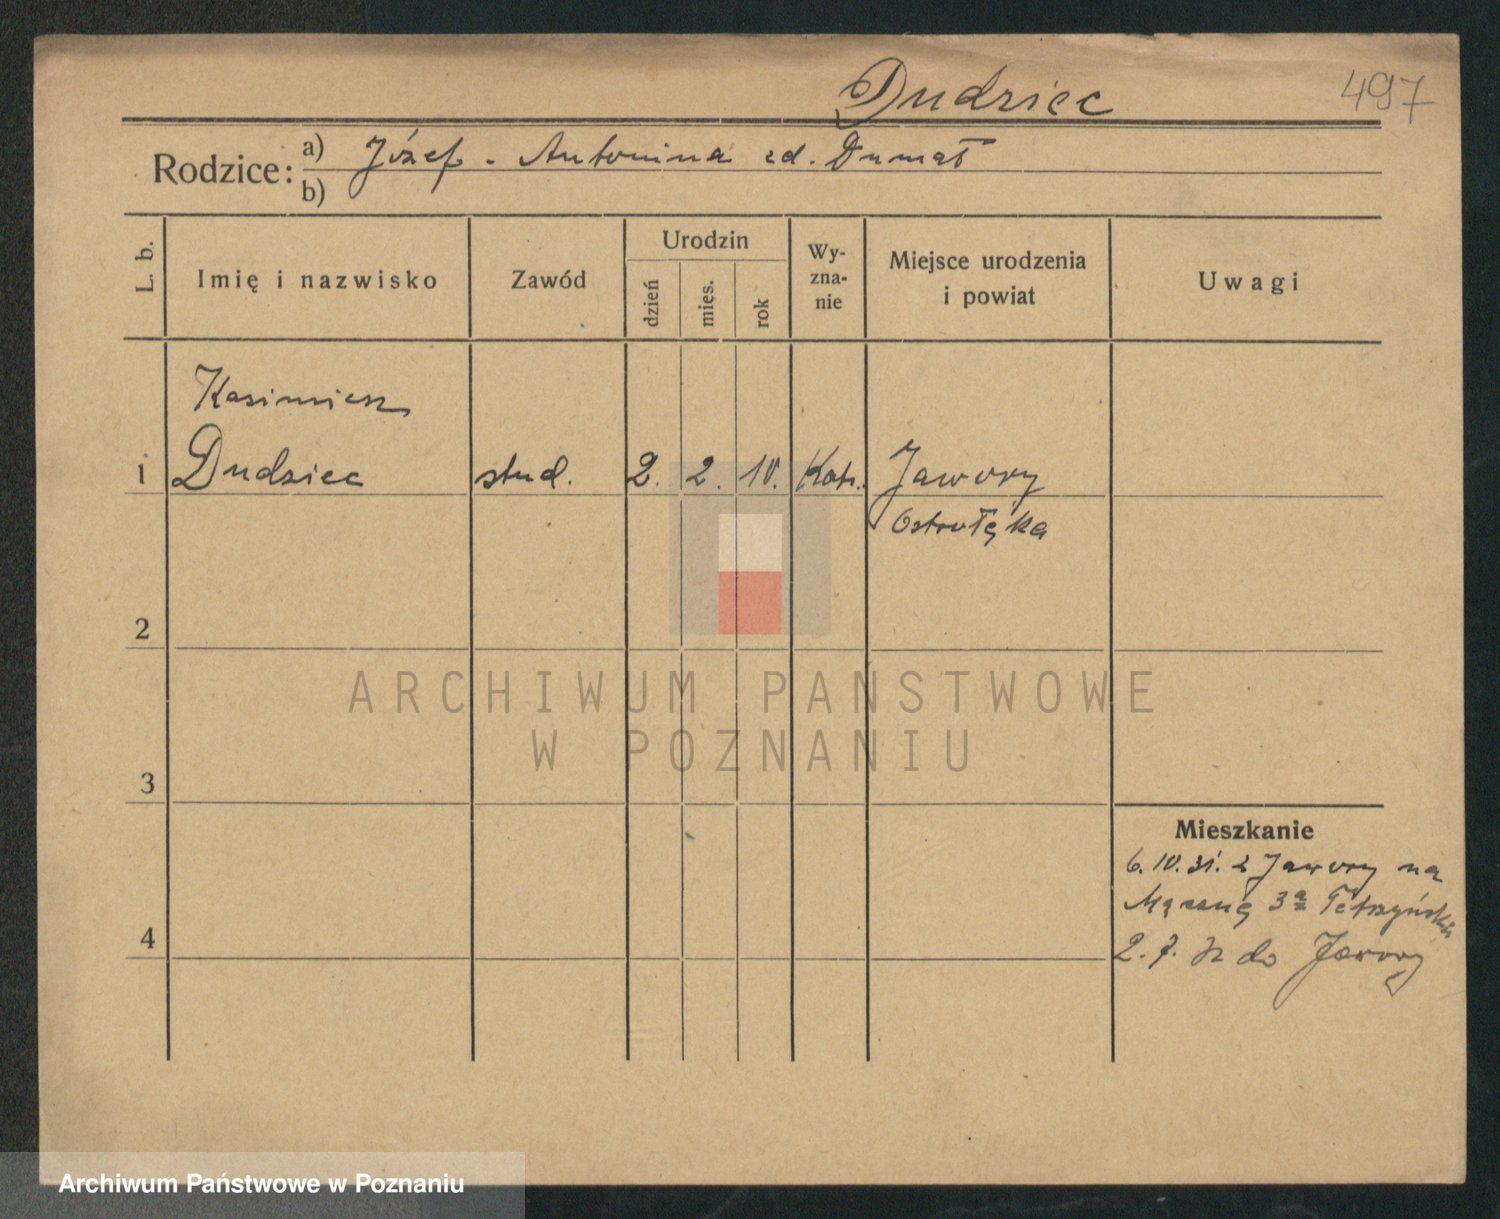 Dudziec
497
Rodzice: a) Józef - Antonina zd. Dumał
b)
L. b.
Imię i nazwisko
Zawód
Urodzin
dzień
mies.
rok
Wy-
zna-
nie
Miejsce urodzenia
i powiat
Uwagi
Kazimierz
1 Dudziec stud. 2. 2. 10. Kat. Jawory
Ostrołęka
2
ARCHIWUM PAŃSTWOWE
W POZNANIU
3
Mieszkanie
6. 10. 31. z Jawory na
3a
4
2. 7. 32 do Jawory
Archiwum Państwowe w Poznaniu